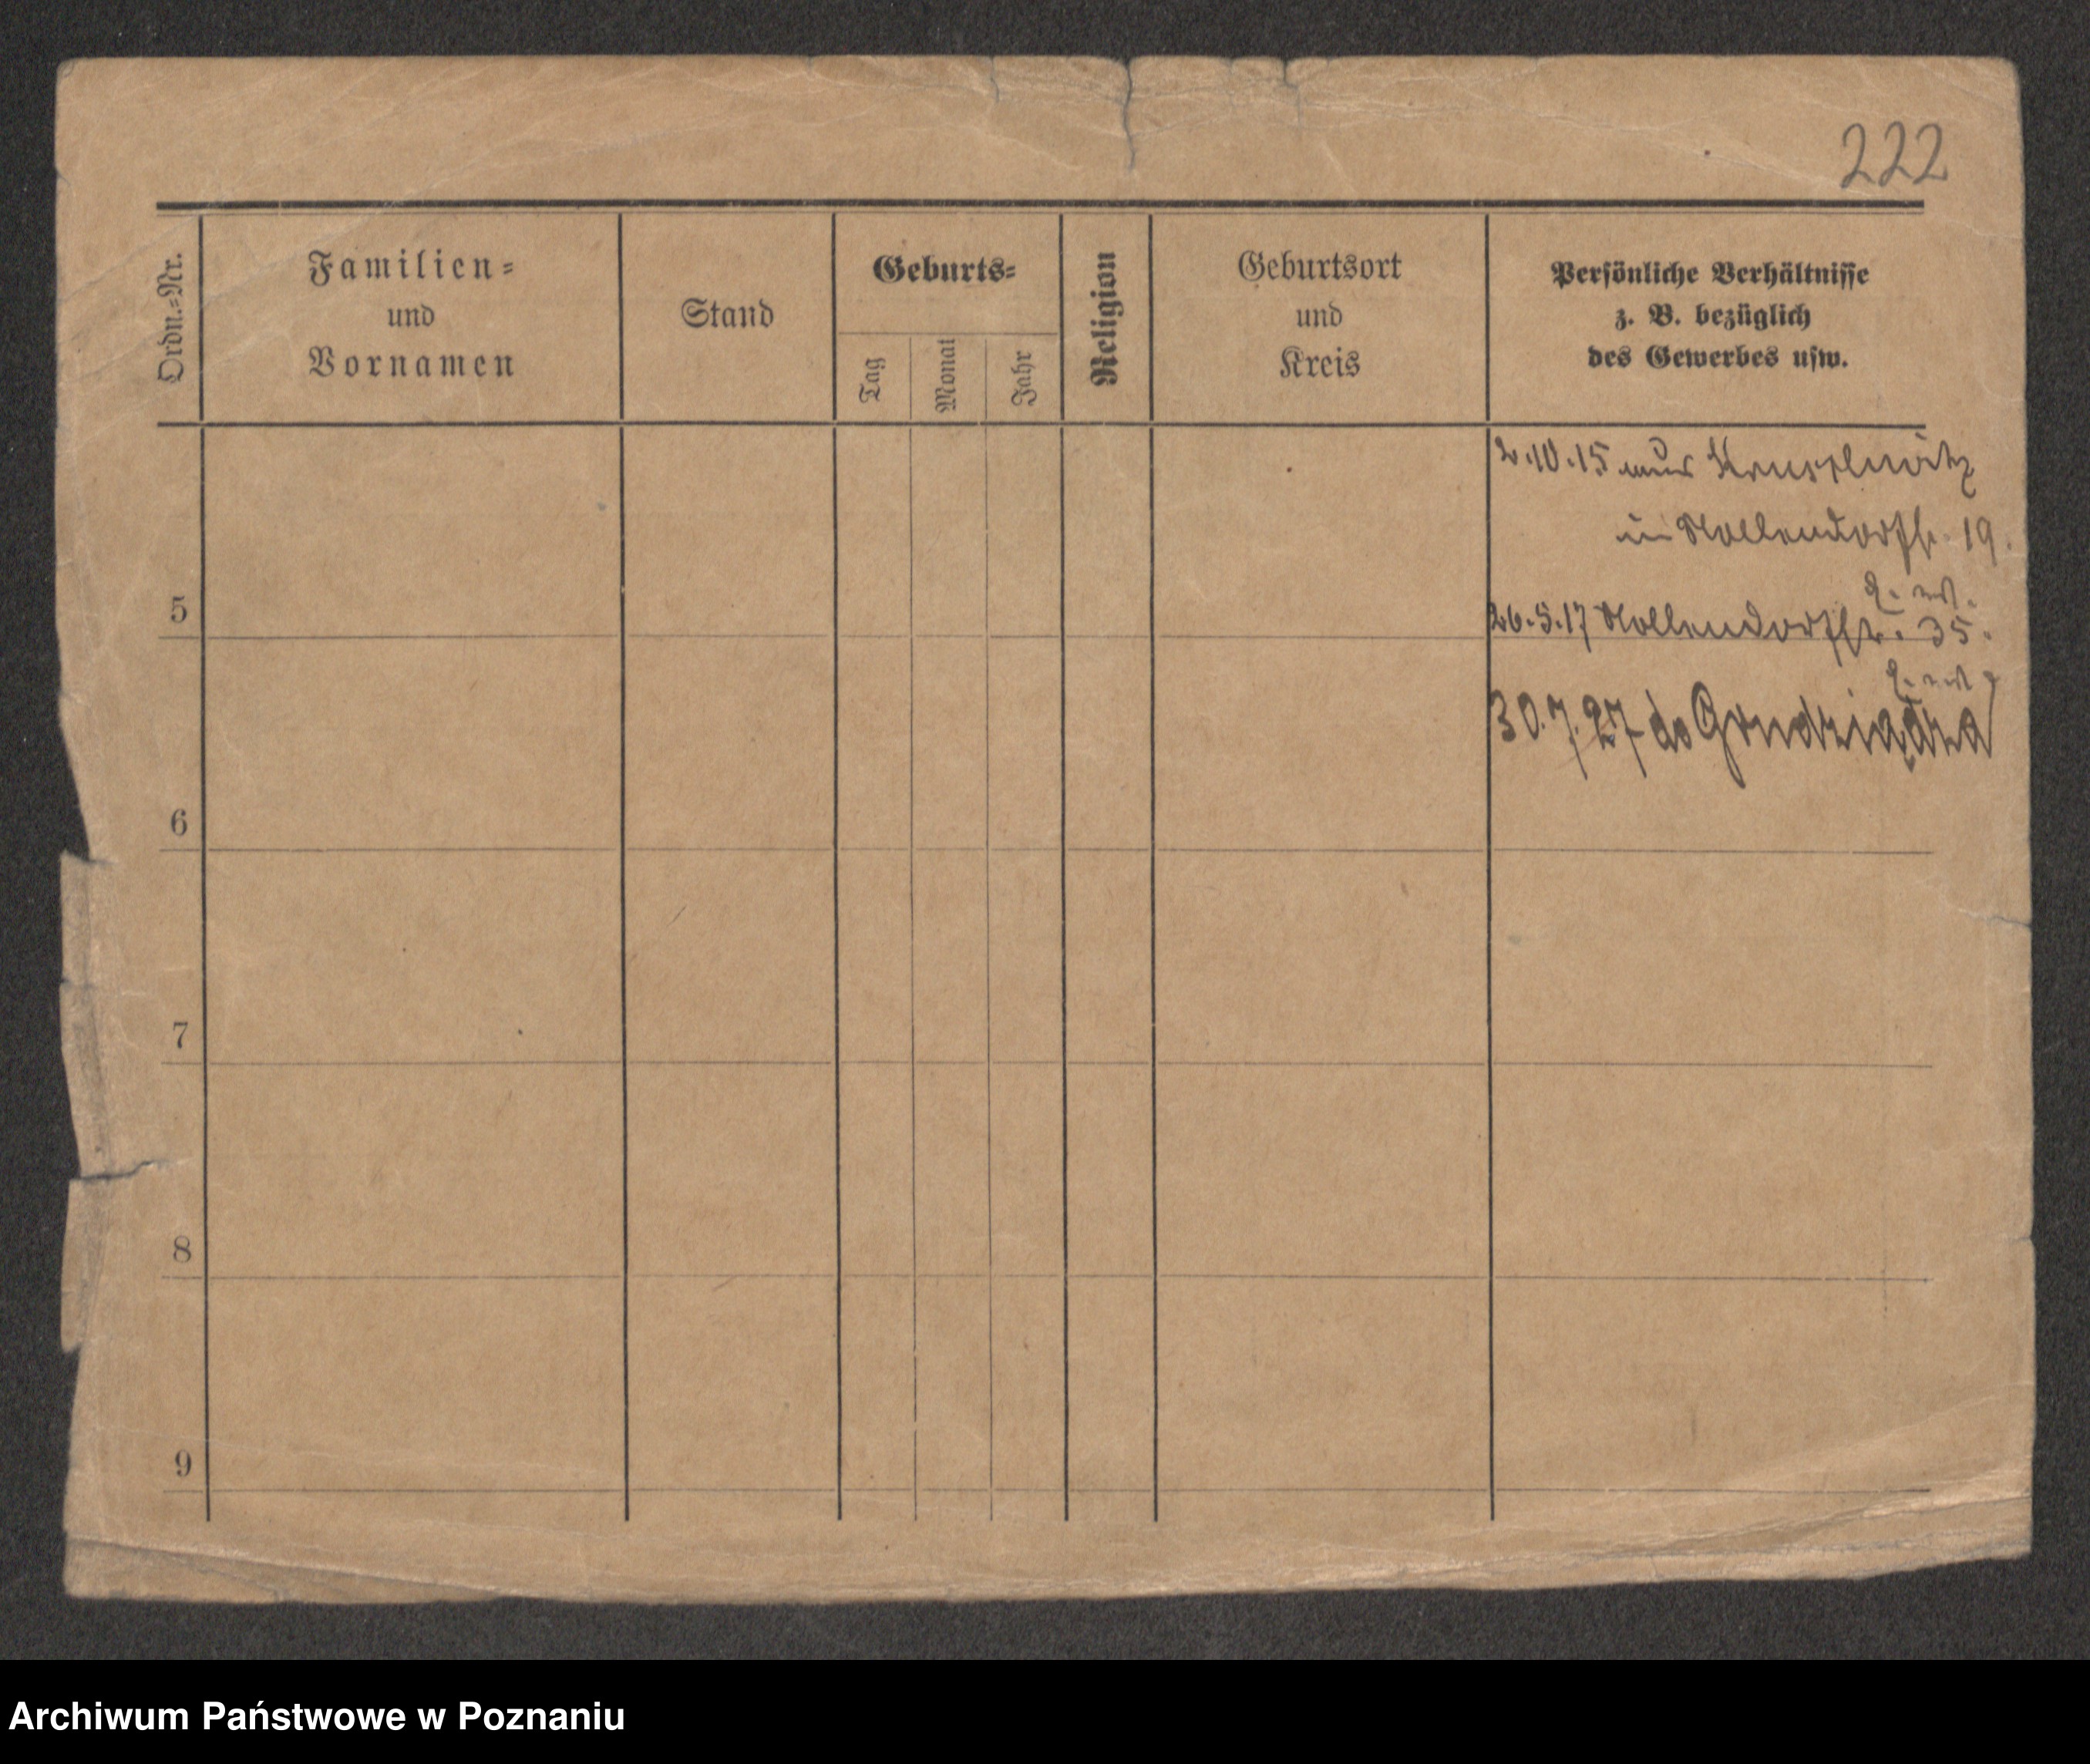 222
Ordn.-Nr.
Familien-
und
Vornamen
Stand
Geburts-
Tag
Monat
Jahr
Religion
Geburtsort
und
Kreis
Persönliche Verhältnisse
z. B. bezüglich
des Gewerbes usw.
2.10.15
in Nollendorfstr. 19.
5
26.5.17 Nollendorfstr. 35.
30.7.27 do Grudziądza
6
7
8
9
Archiwum Państwowe w Poznaniu